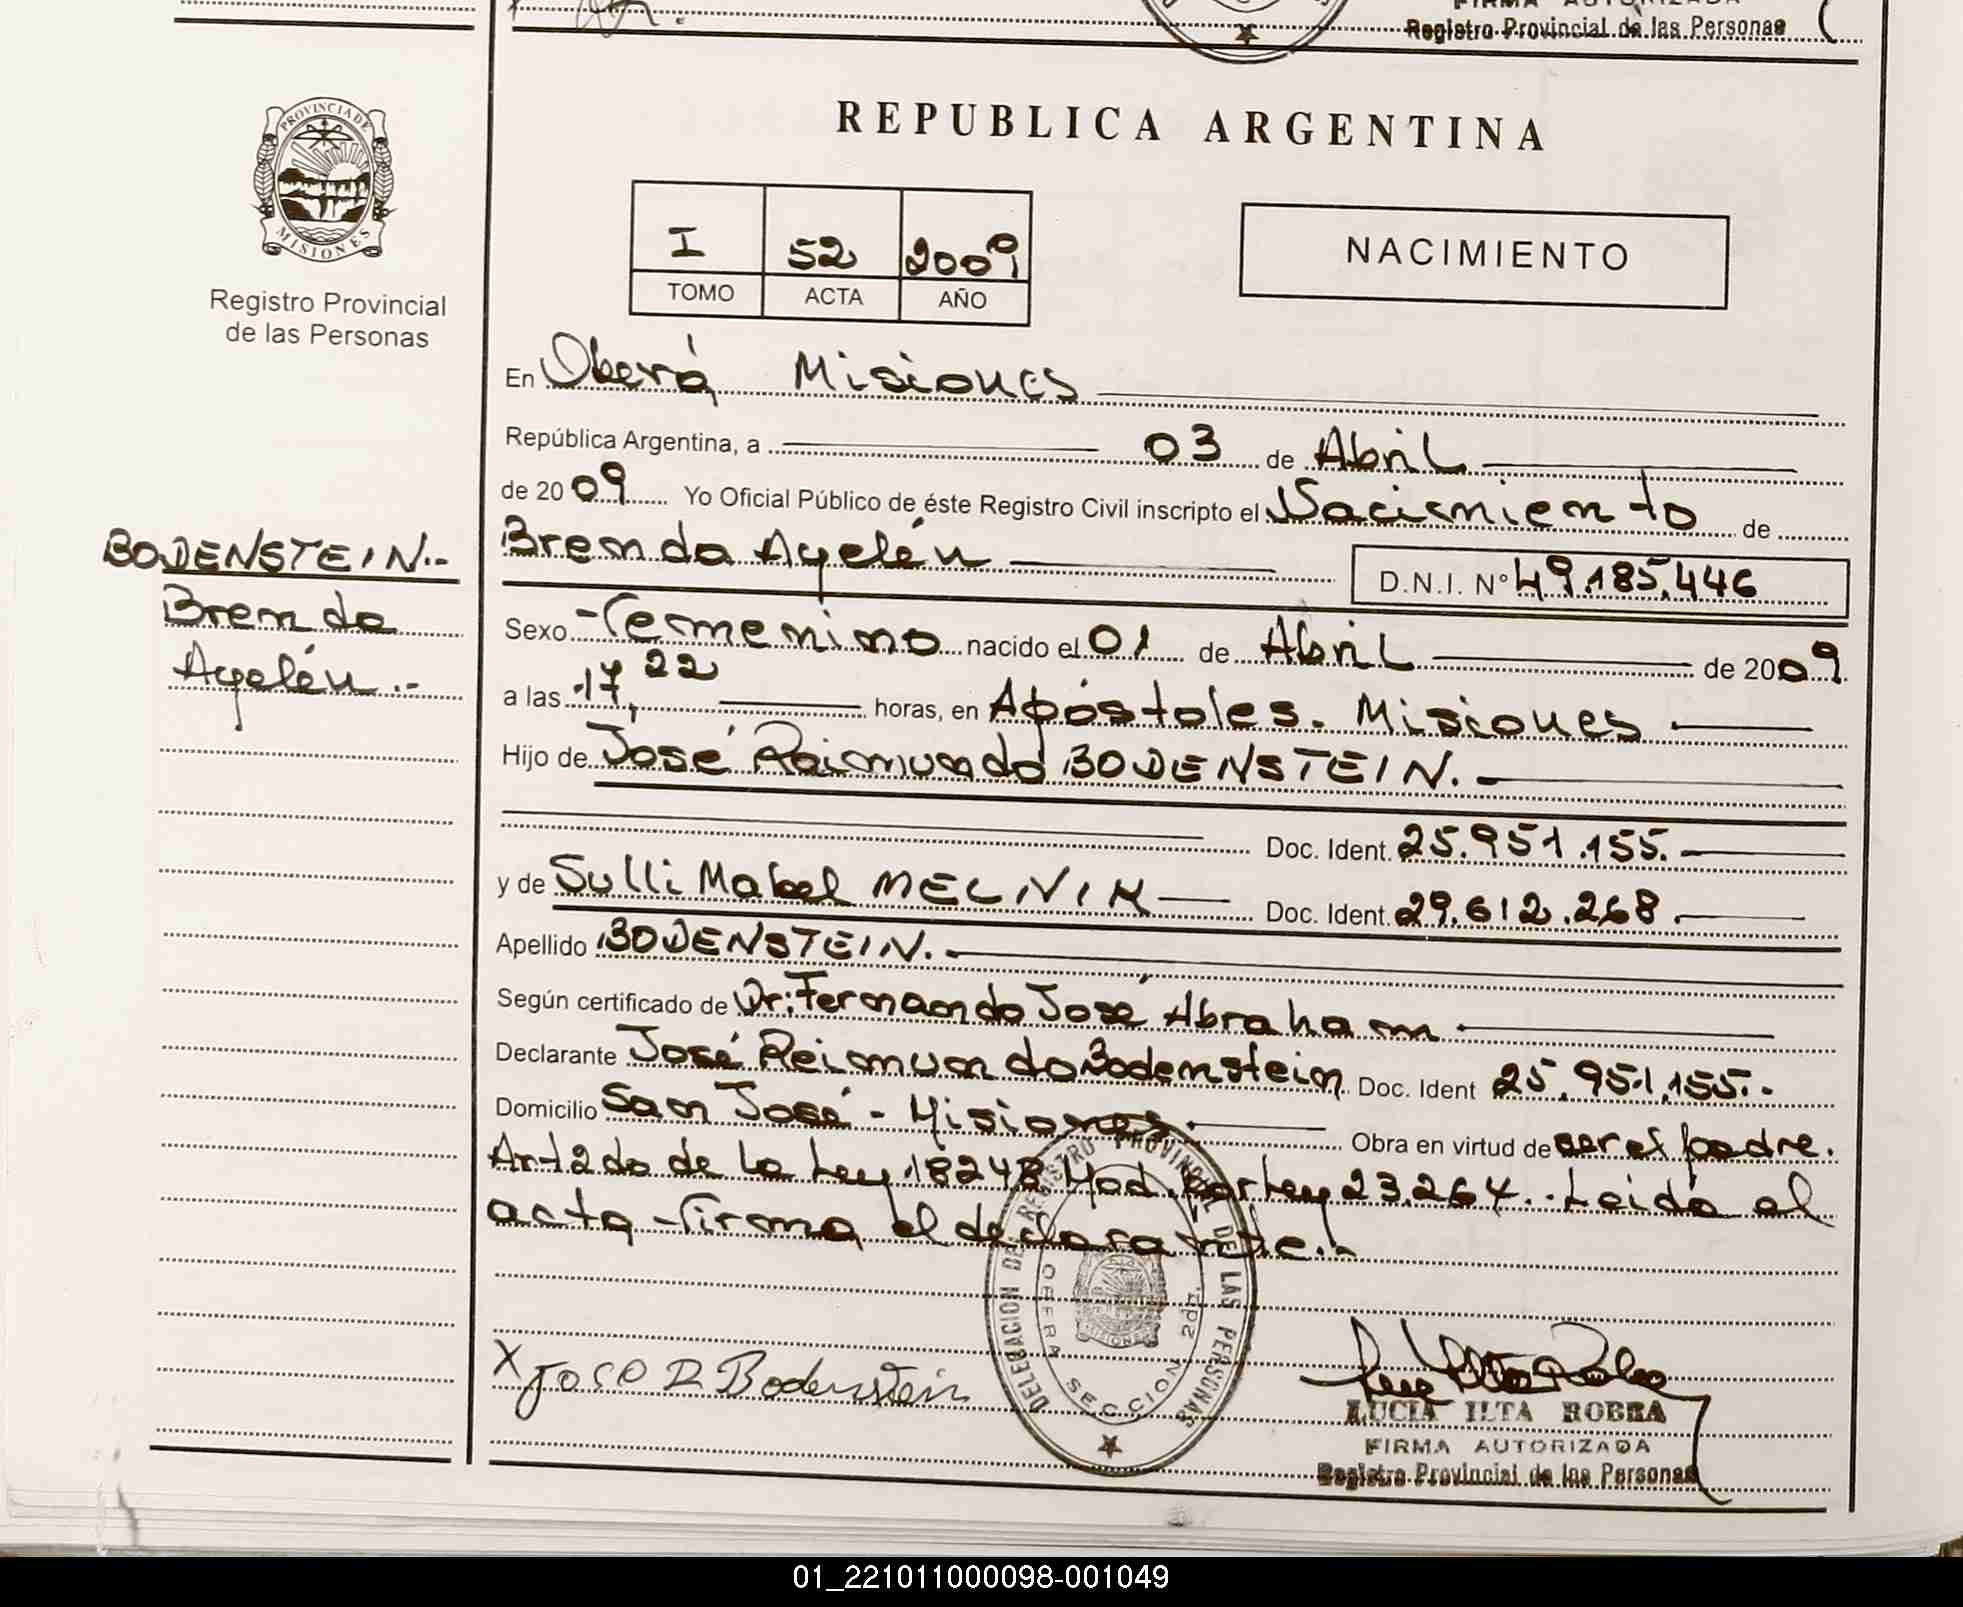 Registro Provincial de las Personas
PROVINCIA DE
MISIONES
Registro Provincial
de las Personas
REPUBLICA ARGENTINA
I 52 2009
TOMO ACTA AÑO
NACIMIENTO
En Oberá Misiones
República Argentina, a 03 de Abril
de 2009 Yo Oficial Público de éste Registro Civil inscripto el Nacimiento de
Brenda Ayelén D.N.I. N° 49.185.446
BODENSTEIN.-
Brenda
Ayelén.-
Sexo Femenino nacido el 01 de Abril de 2009
a las 17,22 horas, en Apóstoles. Misiones
Hijo de José Raimundo BODENSTEIN.
Doc. Ident. 25.951.155.
y de Sulli Mabel MELNIK Doc. Ident. 29.612.268.
Apellido BODENSTEIN.
Según certificado de Dr: Fernando José Abraham
Declarante José Reimundo Bodenstein Doc. Ident 25.951.155.-
Domicilio San José - Misiones. Obra en virtud de ser el padre.
Art 2do de la Ley 18248 Mod. por Ley 23.264.. Leida el
acta firma el declarante.-
DELEGACION DEL REGISTRO PROVINCIAL DE LAS PERSONAS
OBERA SECCION 2da.
X Jose R Bodenstein
LUCIA ILTA ROBRA
FIRMA AUTORIZADA
Registro Provincial de las Personas
01_221011000098-001049